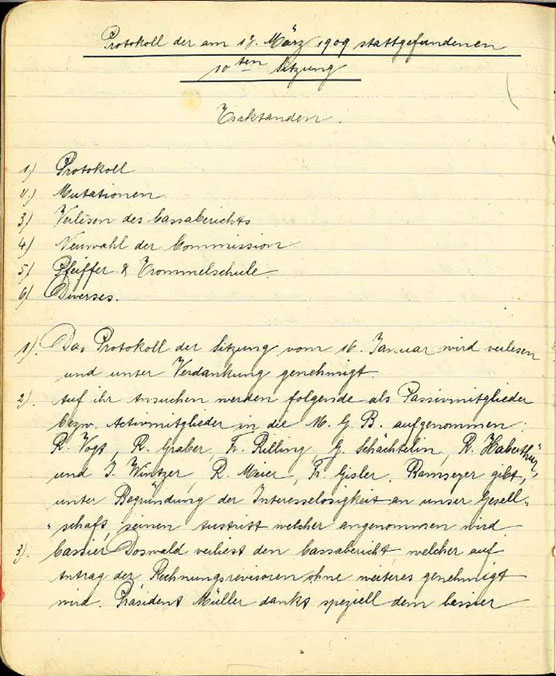 Protokoll der am 17. März 1909 stattgefundenen
10ten Sitzung
Traktanden.
1) Protokoll
2) Mutationen
3) Verlesen des Cassaberichts
4) Neuwahl der Commission
5) Pfeiffer & Trommelschule
6) Diverses.
1). Das Protokoll der Sitzung vom 16. Januar wird verlesen
und unter Verdankung genehmigt.
2). Auf ihr Ansuchen werden folgende als Passivmitglieder
bezw. Activmitglieder in die M. G. B. aufgenommen:
R. Vogt, R. Graber, Fr. Rilling, G. Schächtelin, R. Haberthür,
und J. Wintzer, R. Meier, Fr. Gisler. Ramseyer gibt,
unter Begründung der Interesselosigkeit an unser Gesell-
"schaft, seinen Austritt welcher angenommen wird.
3). Cassier Doswald verliest den Cassabericht, welcher auf
Antrag der Rechnungsrevisoren ohne weiteres genehmigt
wird. Präsident Müller dankt speziell dem